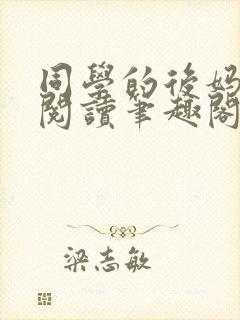 同學的後媽
閱讀筆趣閣
梁志敏